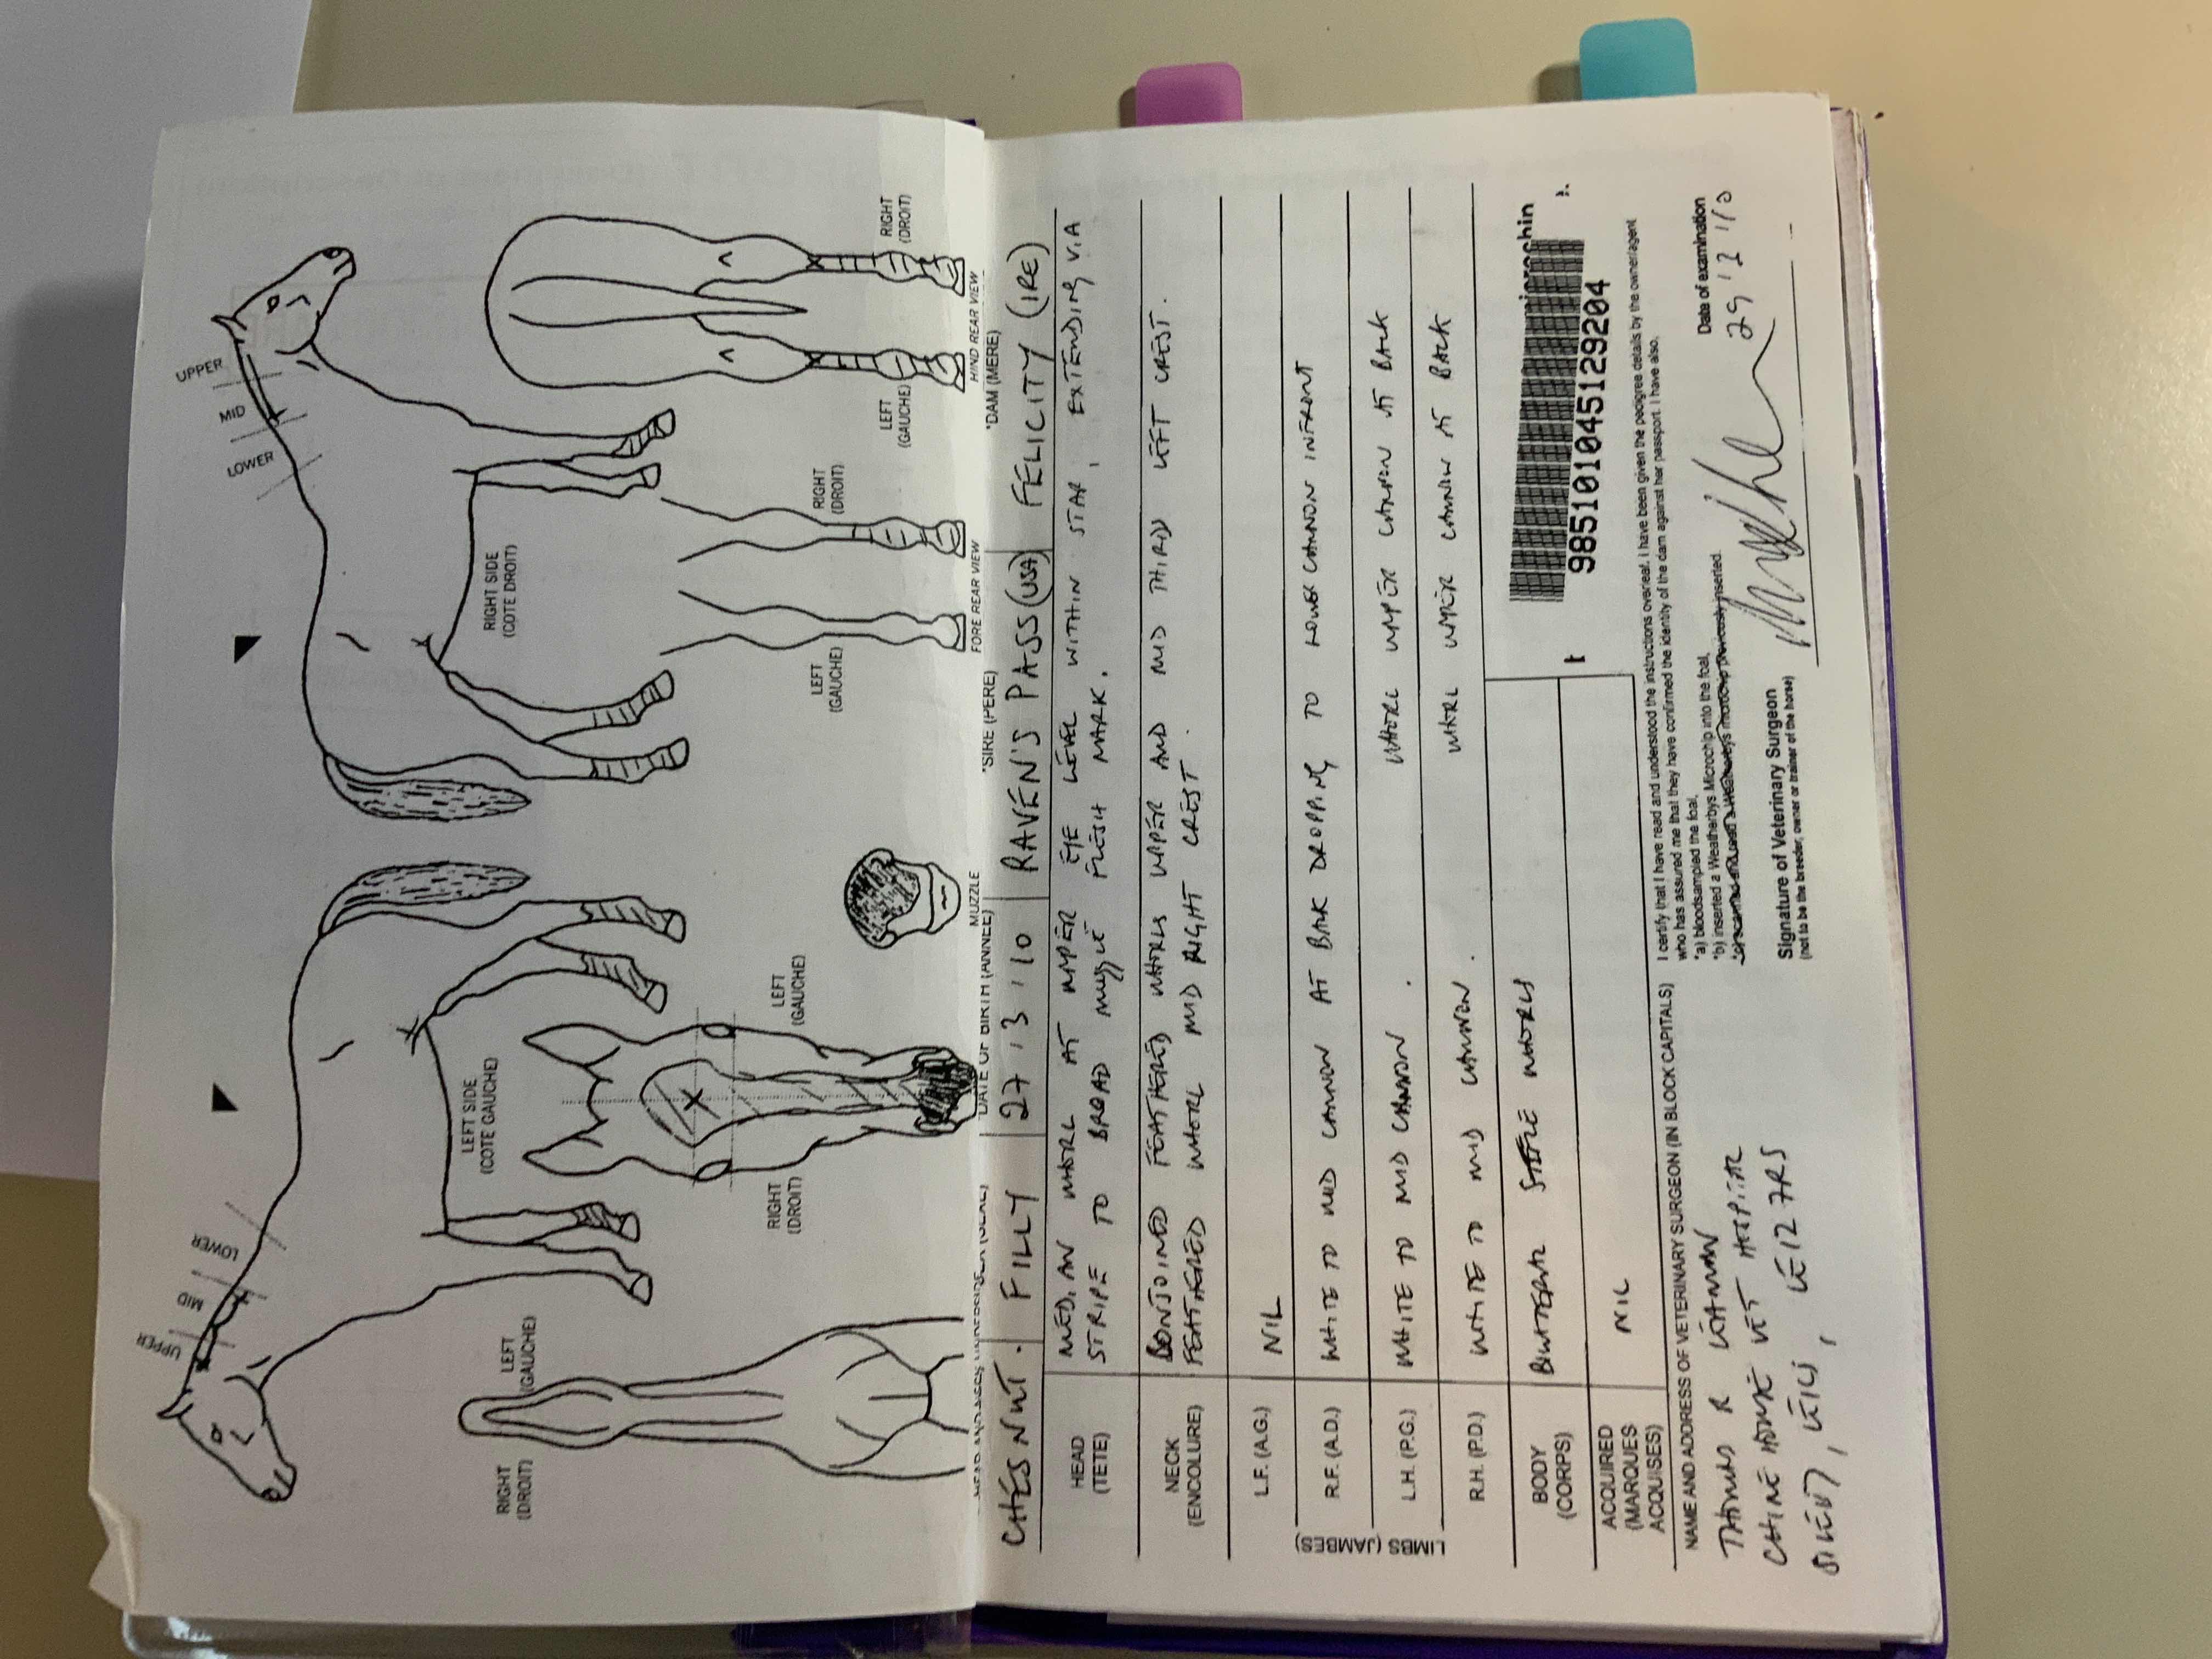 UPPER
MID
LOWER
LOWER
MID
UPPER
RIGHT SIDE
(COTE DROIT)
LEFT SIDE
(COTE GAUCHE)
RIGHT
(DROIT)
LEFT
(GAUCHE)
RIGHT
(DROIT)
LEFT
(GAUCHE)
MUZZLE
LEFT
(GAUCHE)
RIGHT
(DROIT)
FORE REAR VIEW
LEFT
(GAUCHE)
RIGHT
(DROIT)
HIND REAR VIEW
DATE OF BIRTH (ANNEE)
*SIRE (PERE)
*DAM (MERE)
CHESNUT. FILLY 27 . 3 . 10 RAVEN'S PASS (USA) FELICITY (IRE)
HEAD
(TETE)
MEDIAN WHORL AT UPPER EYE LEVEL WITHIN STAR, EXTENDING VIA
STRIPE TO BROAD MUZZLE FLESH MARK.
NECK
(ENCOLURE)
CONJOINED FEATHERED WHORLS UPPER AND MID THIRD LEFT CREST.
FEATHERED WHORL MID RIGHT CREST.
LIMBS (JAMBES)
L.F. (A.G.)
NIL
R.F. (A.D.)
WHITE TO MID CANNON AT BACK DROPPING TO LOWER CANNON INFRONT
L.H. (P.G.)
WHITE TO MID CANNON. WHORL UPPER CANNON AT BACK
R.H. (P.D.)
WHITE TO MID CANNON. WHORL UPPER CANNON AT BACK
BODY
(CORPS)
BILATERAL STIFLE WHORLS
ACQUIRED
(MARQUES
ACQUISES)
NIL
985101045129204
NAME AND ADDRESS OF VETERINARY SURGEON (IN BLOCK CAPITALS)
THOMAS R
CHINE HOUSE VET HOSPITAL
SILEBY, LEICS, LE12 7RS
I certify that I have read and understood the instructions overleaf. I have been given the pedigree details by the owner/agent
who has assured me that they have confirmed the identity of the dam against her passport. I have also,
*a) bloodsampled the foal,
*b) inserted a Weatherbys Microchip into the foal,
*c) scanned and read a Weatherbys microchip previously inserted.
Signature of Veterinary Surgeon
(not to be the breeder, owner or trainer of the horse)
Date of examination